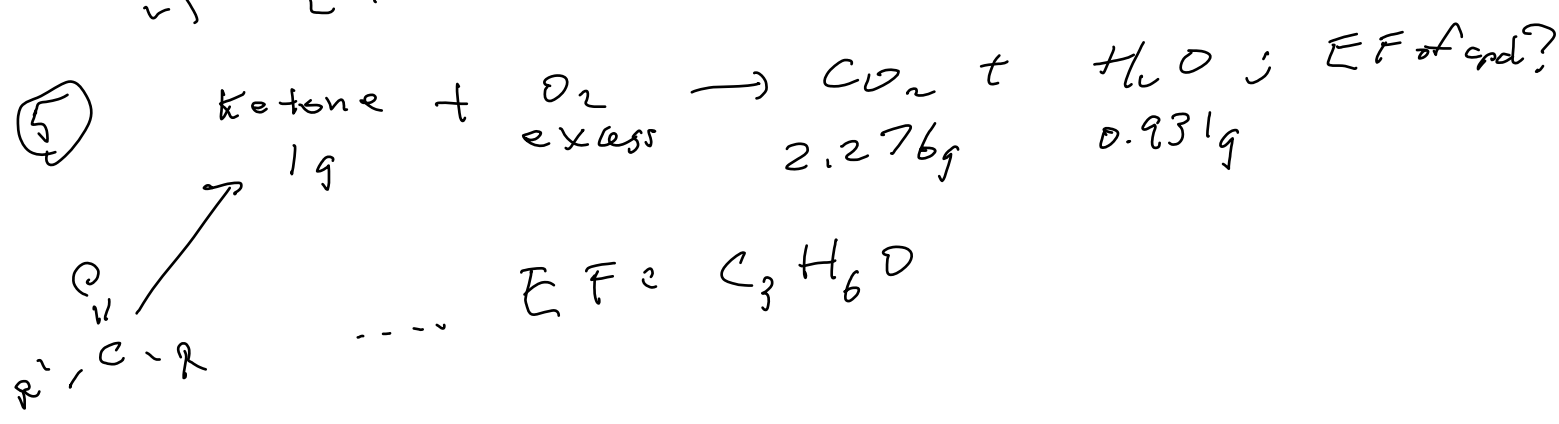 5 Ketone + O2 → CO2 + H2O ; EF of cpd?
1g excess 2.276g 0.931g
O
||
R', C - R
.... EF: C3H6O